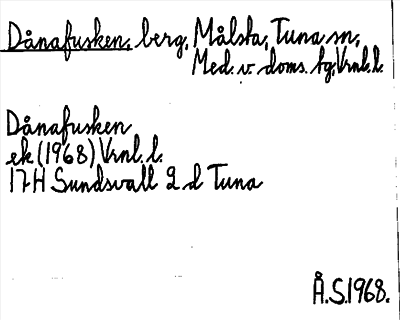 Dånafusken, berg, Målsta, Tuna sn,
Med. v. doms. tg, Vrnl. l.
Dånafusken
ek (1968) Vrnl. l.
17H Sundsvall 2 d Tuna
Å.S. 1968.